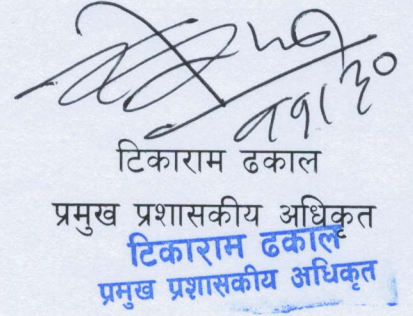 टिकाराम ढकाल
प्रमुख प्रशासकीय अधिकृत
टिकाराम ढकाल
प्रमुख प्रशासकीय अधिकृत